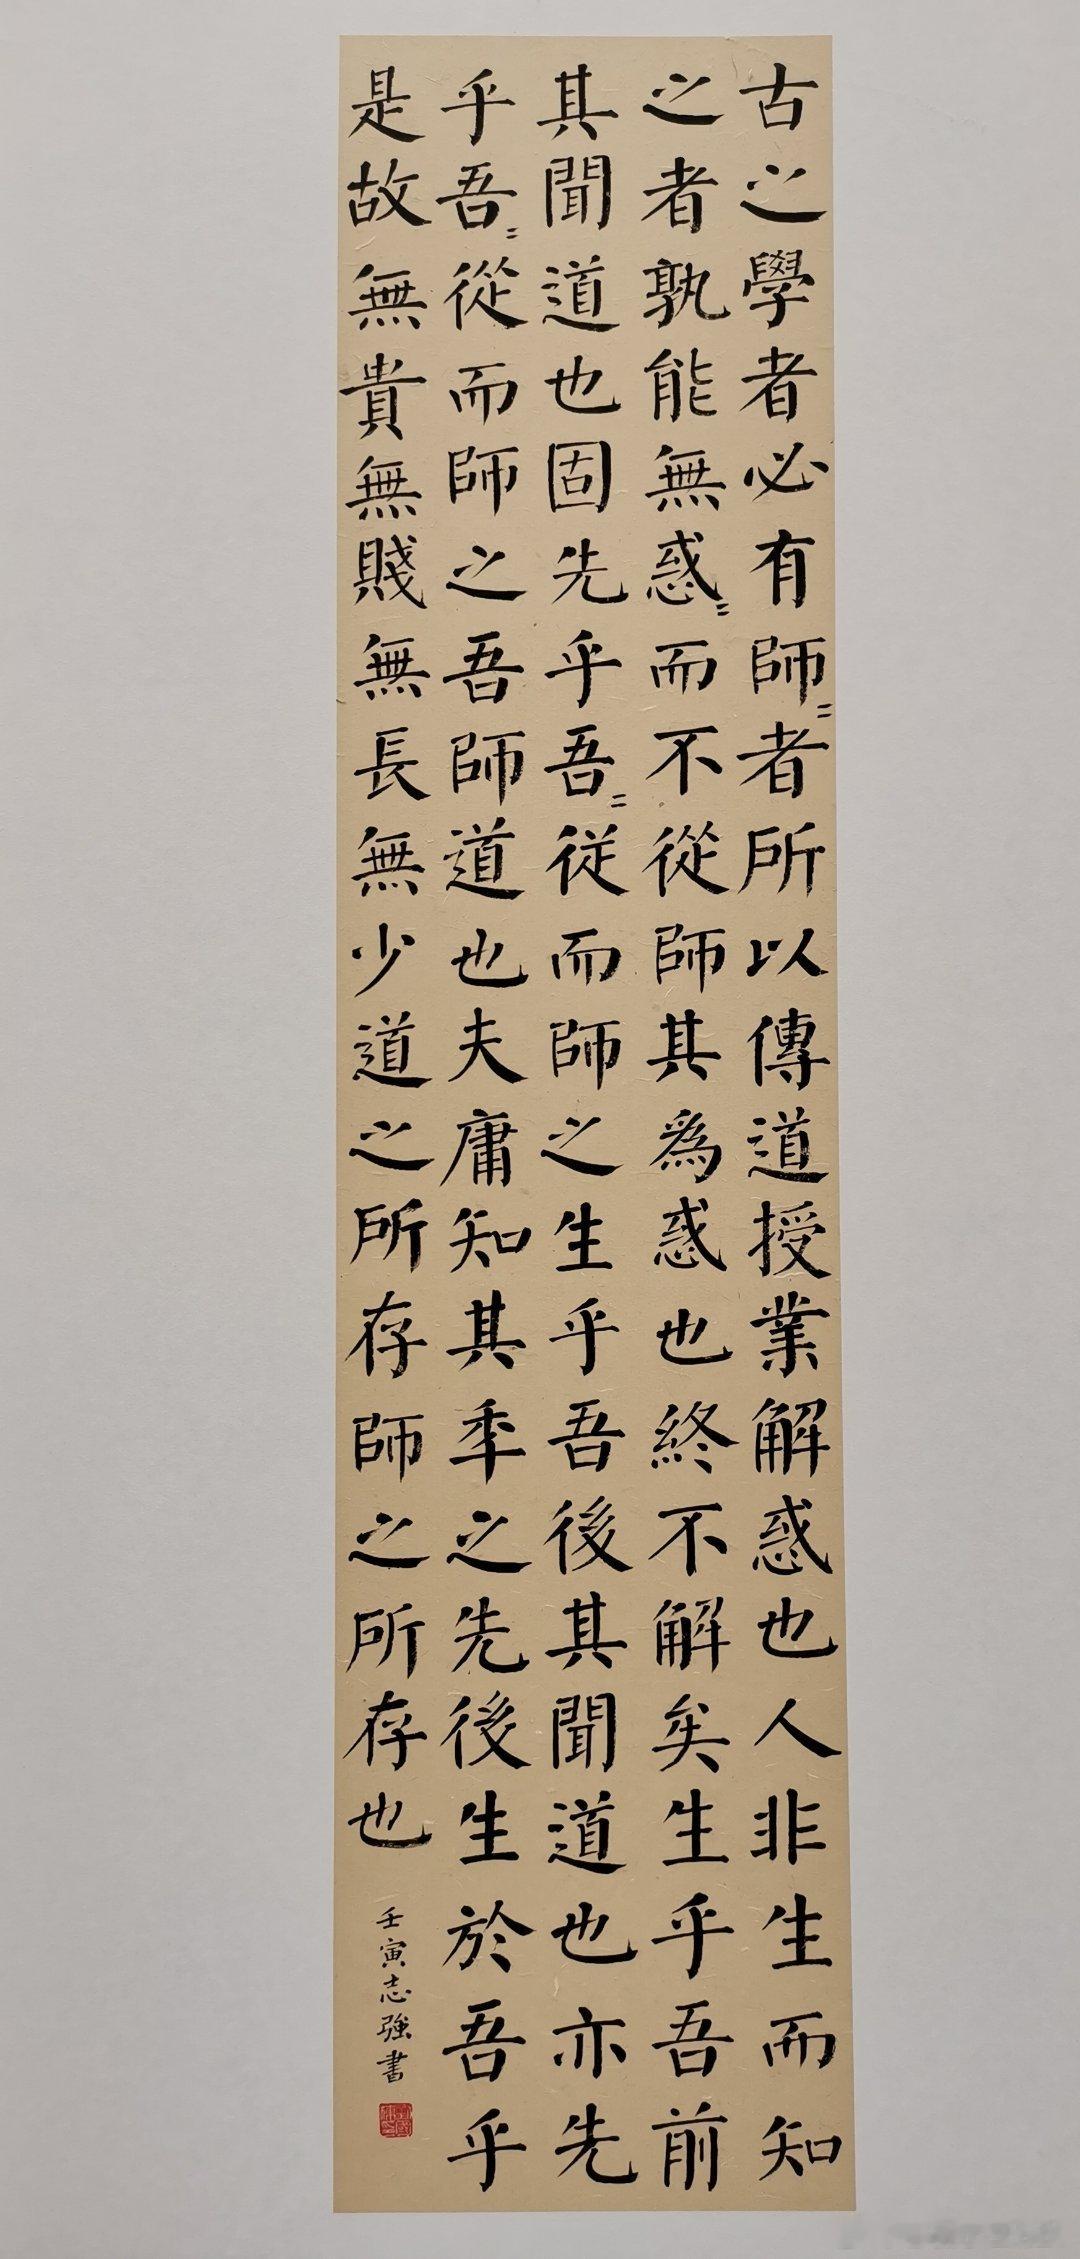 古之學者必有師〻者所以傳道授業解惑也人非生而知
之者孰能無惑〻而不從師其為惑也終不解矣生乎吾前
其聞道也固先乎吾〻従而師之生乎吾後其聞道也亦先
乎吾〻從而師之吾師道也夫庸知其年之先後生於吾乎
是故無貴無賤無長無少道之所存師之所存也
壬寅志強書